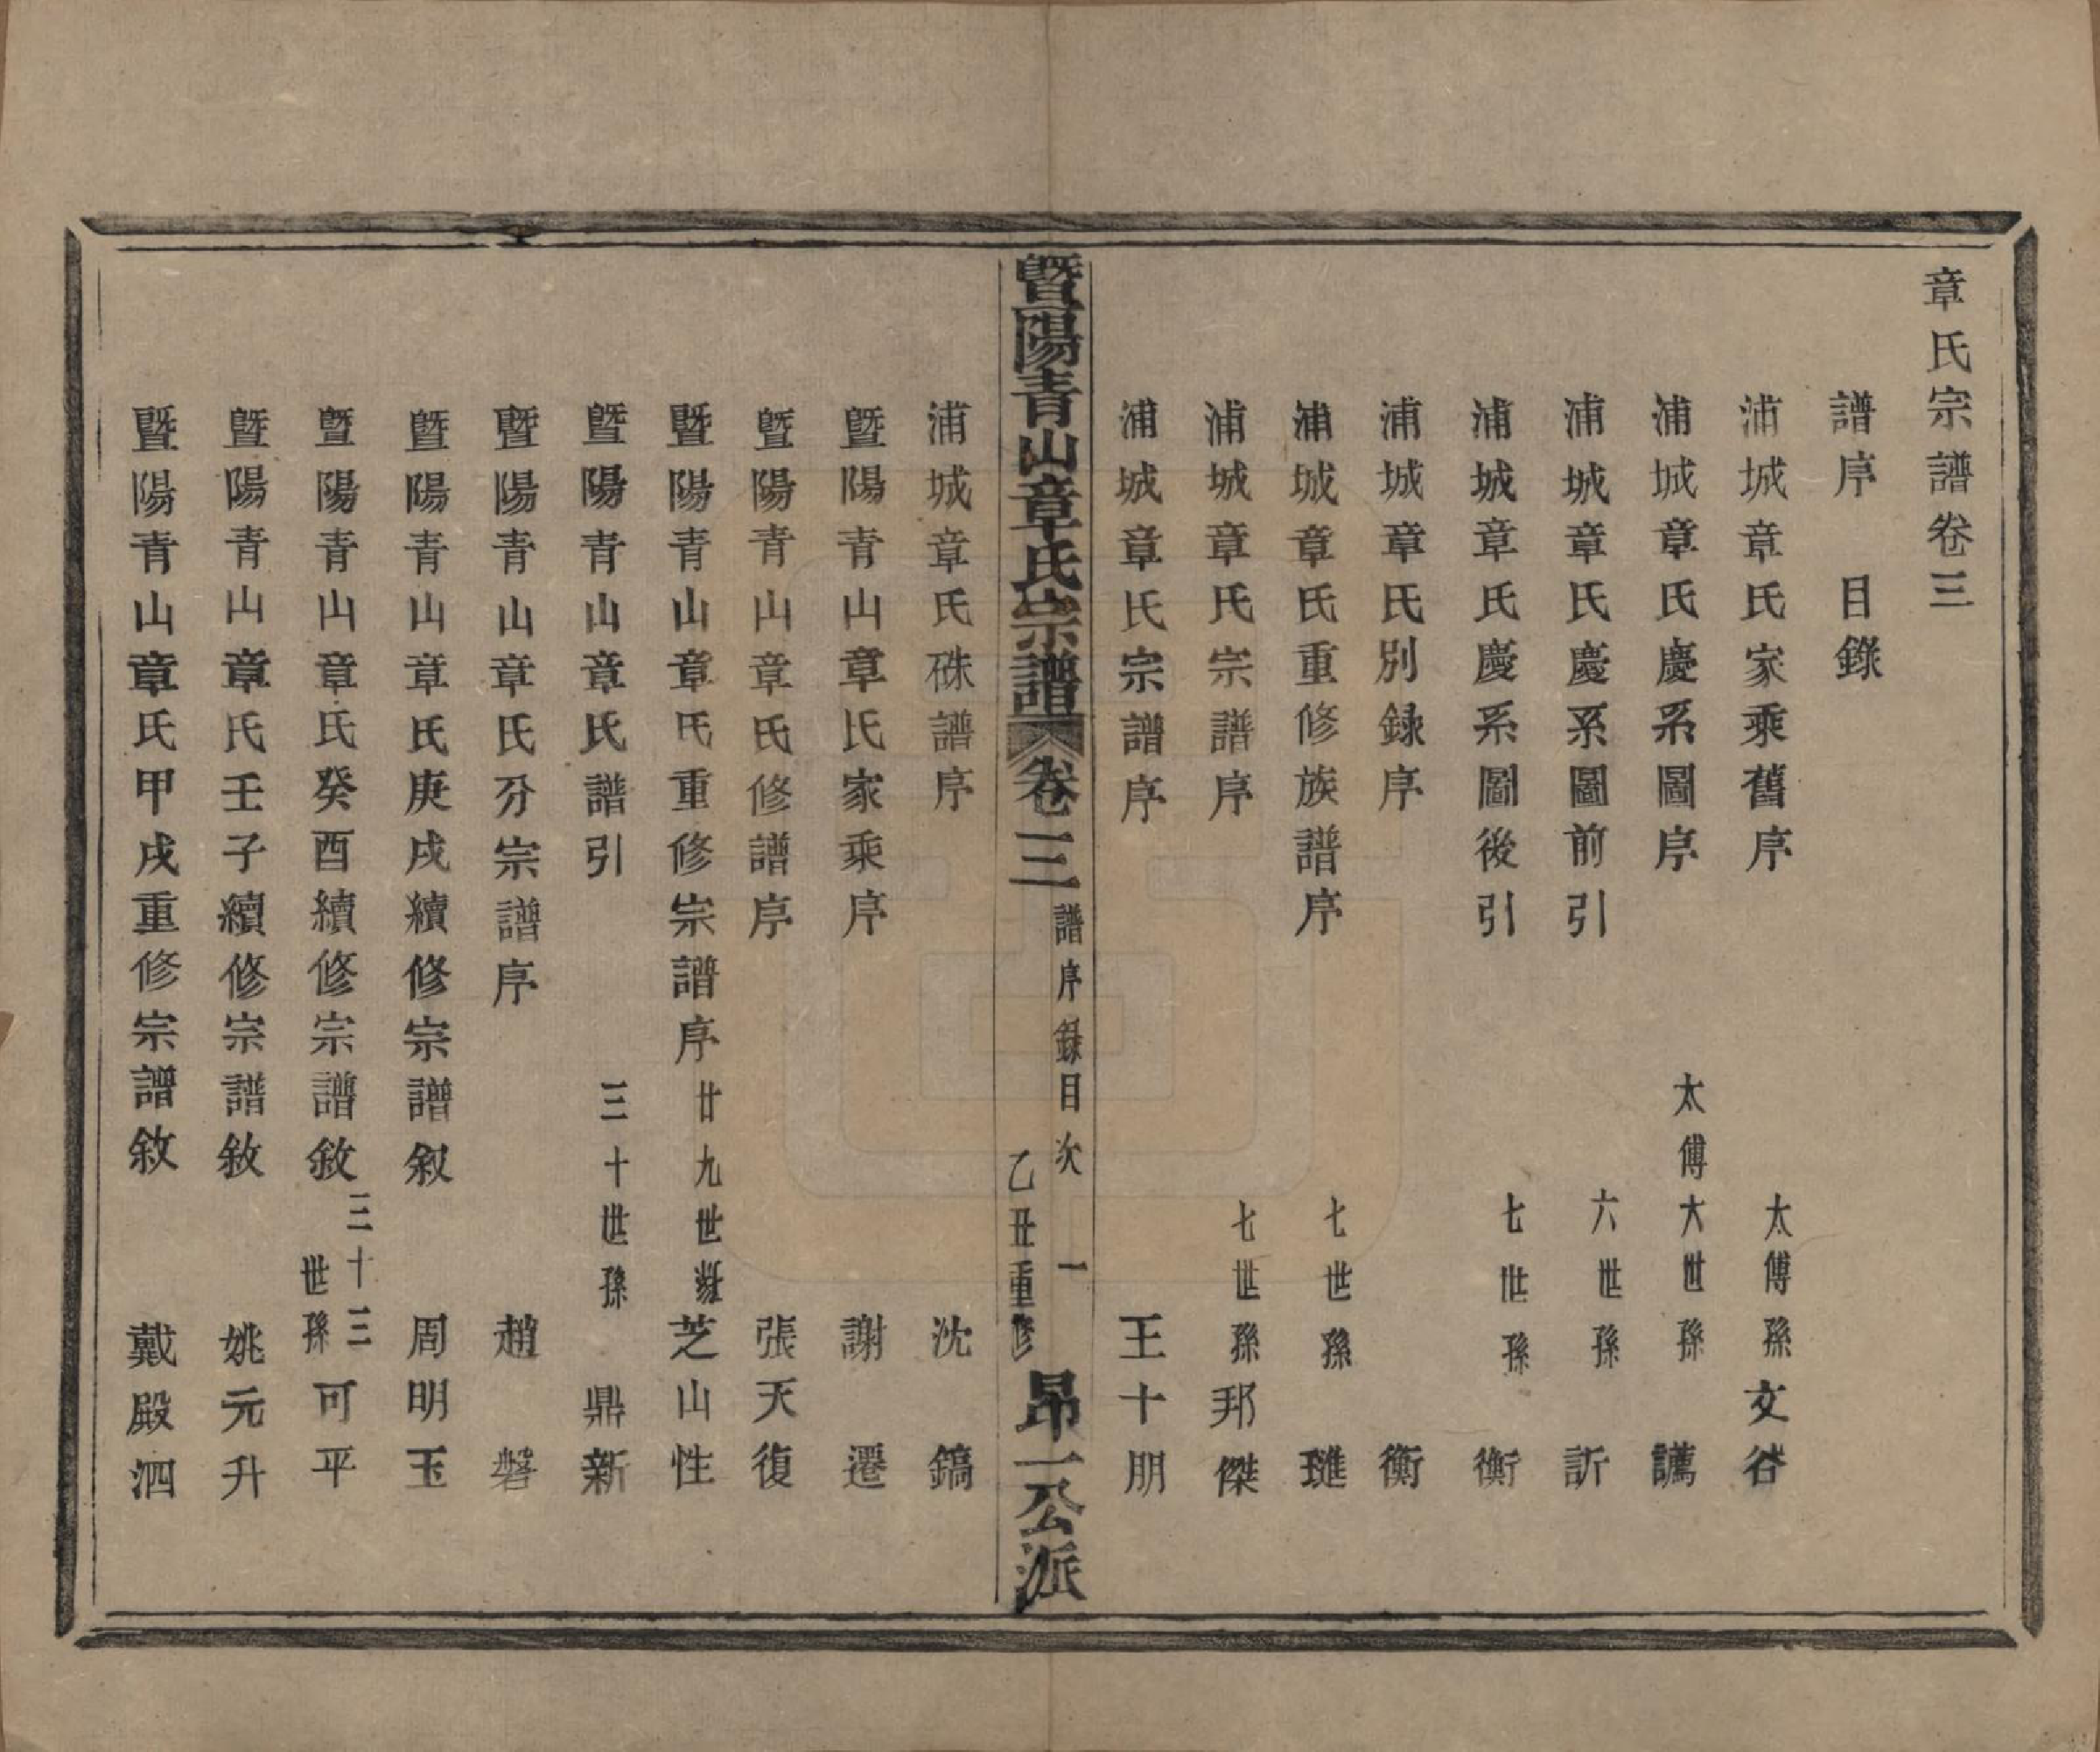 章氏宗譜卷三
譜序　目錄
浦城章氏家乘舊序　太傅孫　文谷
浦城章氏慶系圖序　太傅大世孫　讌
浦城章氏慶系圖前引　六世孫　訢
浦城章氏慶系圖後引　七世孫　衡
浦城章氏別録序　衡
浦城章氏重修族譜序　七世孫　璡
浦城章氏宗譜序　七世孫　邦傑
浦城章氏宗譜序　王十朋
暨陽青山章氏宗譜　卷三　譜序錄目次　一　乙丑重修　昂一公派
浦城章氏硃譜序　沈　鎬
暨陽青山章氏家乘序　謝　遷
暨陽青山章氏修譜序　張天復
暨陽青山章氏重修宗譜序　廿九世孫　芝山性
暨陽青山章氏譜引　三十世孫　鼎新
暨陽青山章氏分宗譜序　趙　磐
暨陽青山章氏庚戌續修宗譜叙　周明玉
暨陽青山章氏癸酉續修宗譜敘　三十三世孫　可平
暨陽青山章氏壬子續修宗譜敘　姚元升
暨陽青山章氏甲戌重修宗譜敘　戴殿泗